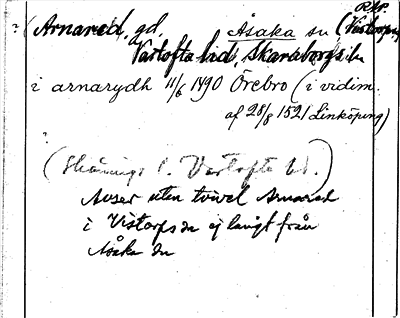 ? (Arnared, gd, Åsaka sn (Vistorps
Vartofta hd, Skaraborgs län
i arnarydh 11/6 1490 Örebro (i vidim.
af 28/8 1521 Linköping)
(Skånings l. Vartofta hd.)
Avser utan tvivel Arnared
i Vistorps sn ej långt från
Åsaka sn